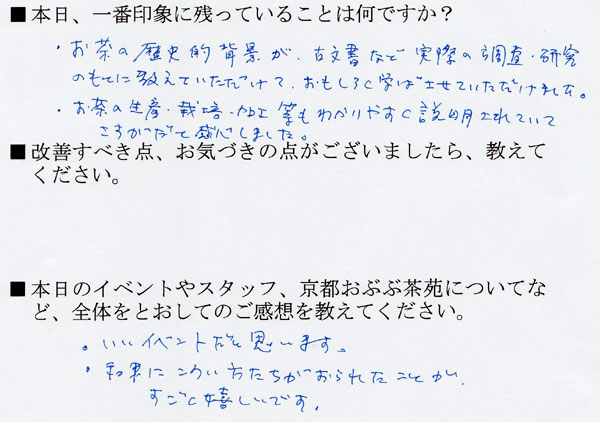 ■本日、一番印象に残っていることは何ですか？
・お茶の歴史的背景が、古文書など実際の調査・研究
のもとに教えていただけて、おもしろく学ばせていただけました。
・お茶の生産・栽培・加工等もわかりやすく説明されていて
さすがだと感心しました。
■改善すべき点、お気づきの点がございましたら、教えて
ください。
■本日のイベントやスタッフ、京都おぶぶ茶苑についてな
ど、全体をとおしてのご感想を教えてください。
。いいイベントだと思います。
・和束にこういう方たちがおられたことが、
すごく嬉しいです。